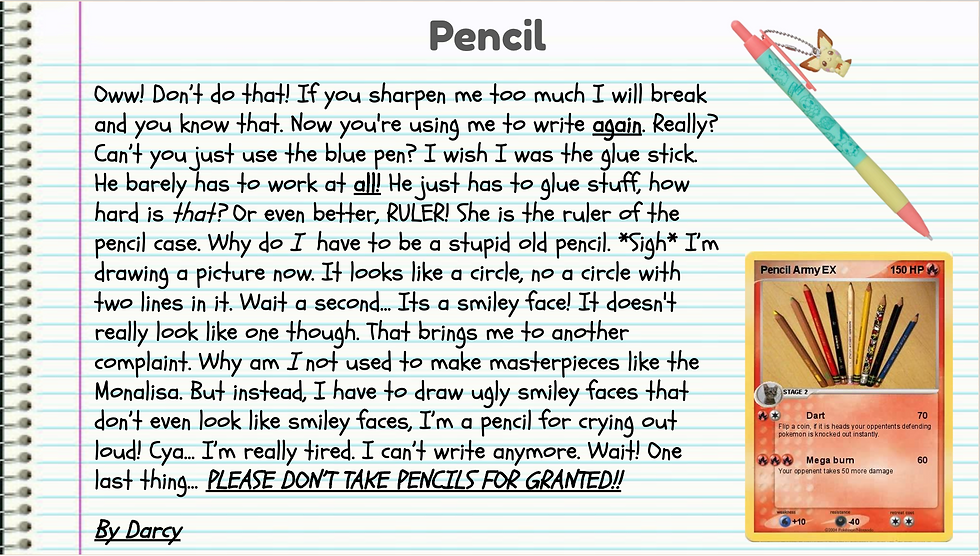 Pencil
Oww! Don't do that! If you sharpen me too much I will break
and you know that. Now you're using me to write again. Really?
Can't you just use the blue pen? I wish I was the glue stick.
He barely has to work at all! He just has to glue stuff, how
hard is that? Or even better, RULER! She is the ruler of the
pencil case. Why do I have to be a stupid old pencil. *Sigh* I'm
drawing a picture now. It looks like a circle, no a circle with
two lines in it. Wait a second... Its a smiley face! It doesn't
really look like one though. That brings me to another
complaint. Why am I not used to make masterpieces like the
Monalisa. But instead, I have to draw ugly smiley faces that
don't even look like smiley faces, I'm a pencil for crying out
loud! Cya... I'm really tired. I can't write anymore. Wait! One
last thing... PLEASE DON'T TAKE PENCILS FOR GRANTED!!
By Darcy
Pencil Army EX 150 HP
STAGE 2
Dart 70
Flip a coin, if it is heads your oppentents defending
pokemon is knocked out instantly.
Mega burn 60
Your openent takes 50 more damage
+10 -40